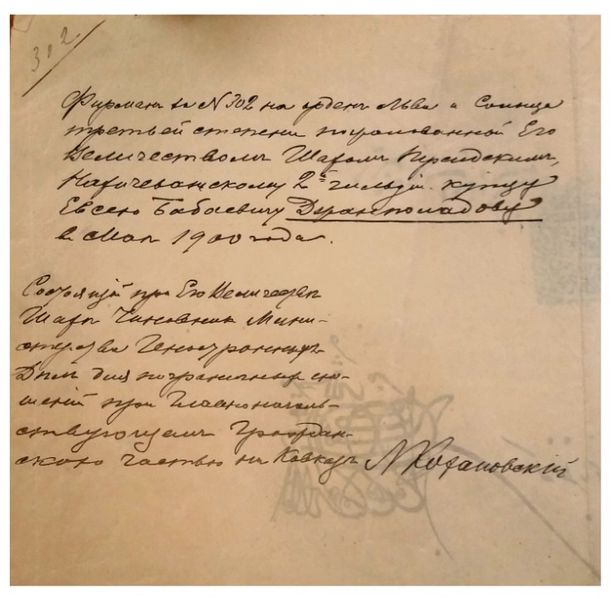 302.
Фирманъ за № 302 на орденъ Льва и Солнца
третьей степени пожалованной Его
Величествомъ Шахомъ Персидскимъ,
Нахичеванскому 2ой гильдіи купцу
Евсею Бабаевичу
в Маѣ 1900 года.
Состоящій при Его Величествѣ
Шахѣ Чиновникъ Мини-
стерства Иностранныхъ
Дѣлъ для пограничныхъ сно-
шеній при Главноначаль-
ствующемъ Граждан-
скою частью на Кавказѣ